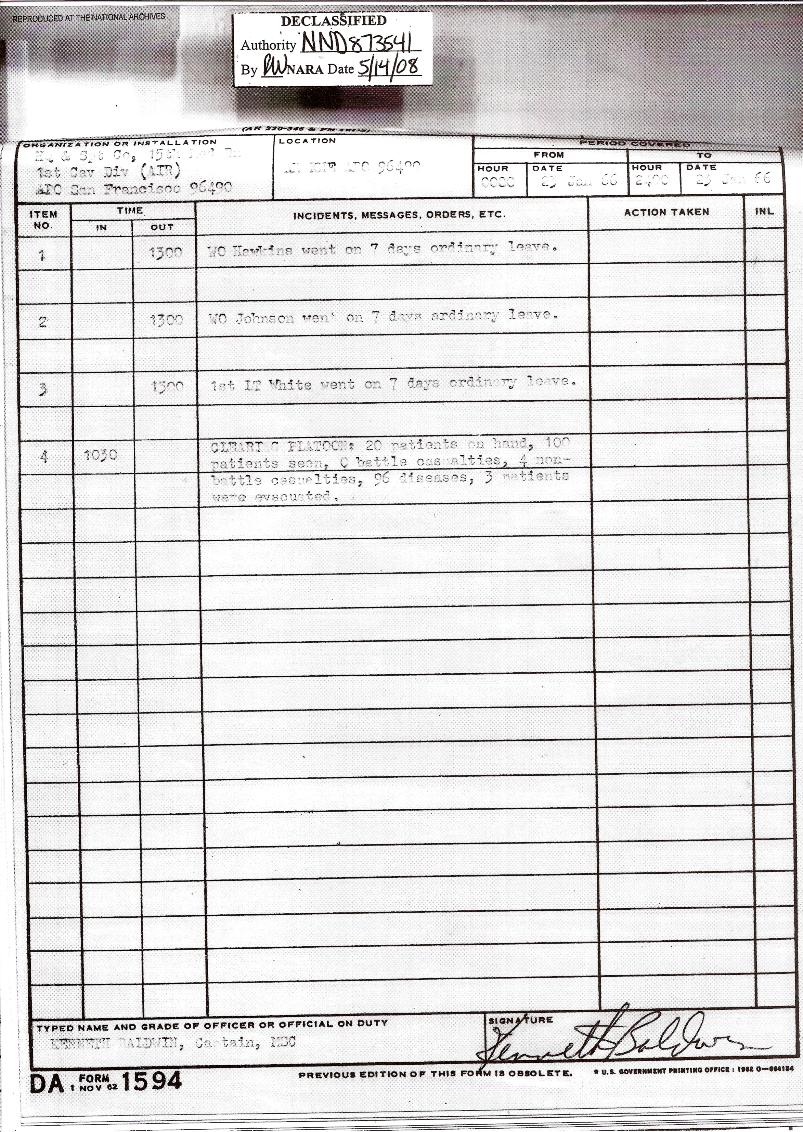 REPRODUCED AT THE NATIONAL ARCHIVES
DECLASSIFIED
Authority NND873541
By RW NARA Date 5/14/08
ORGANIZATION OR INSTALLATION
LOCATION
PERIOD COVERED
FROM
TO
HOUR
DATE
HOUR
DATE
Hq & Spt Co, 15th
1st Cav Div (AIR)
APO San Francisco 96490
APO 96490
0000
23 Jan 66
2400
23 Jan 66
ITEM NO.
TIME
IN
OUT
INCIDENTS, MESSAGES, ORDERS, ETC.
ACTION TAKEN
INL
1
1300
WO Hawkins went on 7 days ordinary leave.
2
1300
WO Johnson went on 7 days ordinary leave.
3
1300
1st LT White went on 7 days ordinary leave.
4
1030
CLEARING PLATOON: 20 patients on hand, 100
patients seen, 0 battle casualties, 4 non-
battle casualties, 96 diseases, 3 patients
were evacuated.
TYPED NAME AND GRADE OF OFFICER OR OFFICIAL ON DUTY
KENNETH BALDWIN, Captain, MSC
SIGNATURE
Kenneth Baldwin
DA FORM 1 NOV 62 1594
PREVIOUS EDITION OF THIS FORM IS OBSOLETE.
* U.S. GOVERNMENT PRINTING OFFICE : 1962 O—664184